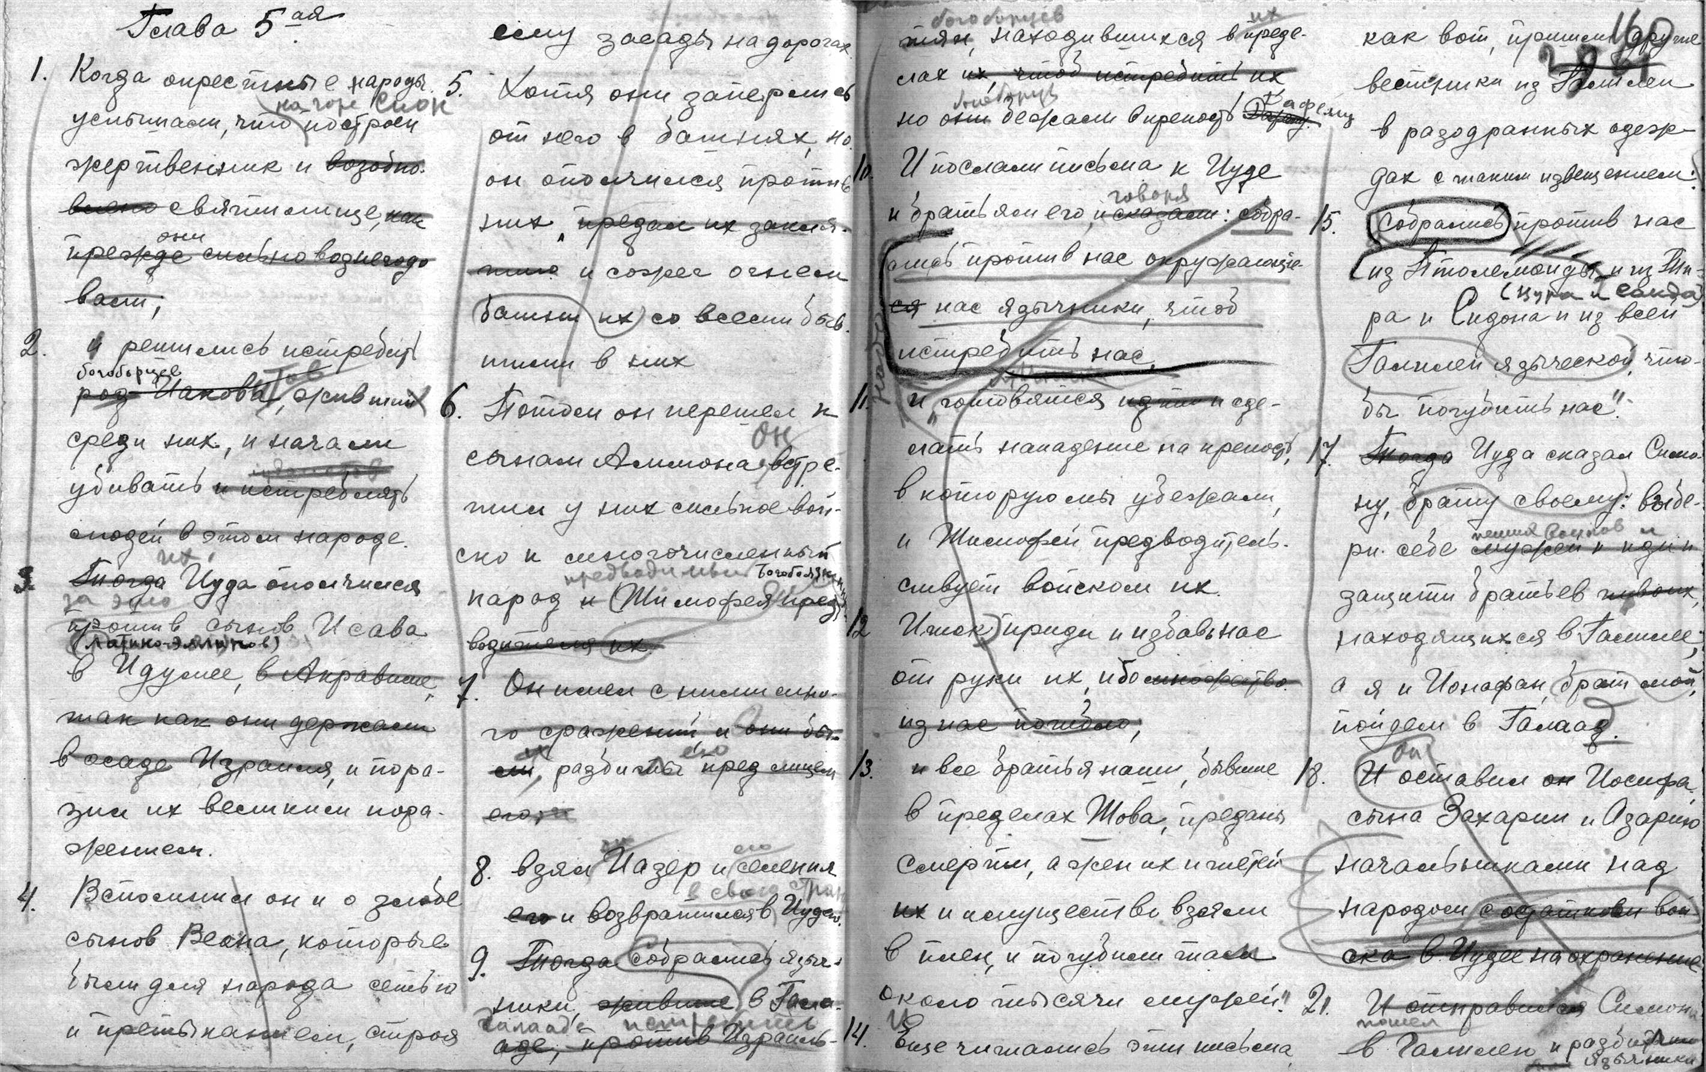 Глава 5ая
1. Когда окрестные народы
на горе Сион
услышали, что построен
жертвенник и возобно-
влено святилище, как
они
прежде сильно вознегодо
вали;
2. и решились истребить
богоборцев
род Иакова, живший
среди них, и начали
убивать и истреблять
людей в этом народе.
их.
3. Тогда Иуда ополчился
за это
против сынов Исава
(латино-эллинов)
в Идумее, в Акравине,
так как они держали
в осаде Израиля, и пора-
зил их великим пора-
жением.
4. Вспомнил он и о злобе
сынов Веана, которые
были для народа сетью
и претыканием, строя
ему засады на дорогах
5. Хотя они заперлись
от него в башнях, но
он ополчился против
них, предал их закля-
тию и сожег огнем
башни их со всеми быв-
шими в них
6. Потом он перешел к
он
сынам Аммона встре-
тил у них сильное вой-
ско и многочисленный
предводимый
народ и Тимофея пред-
водителя их
7. Он имел с ними мно-
го сражений и они бы-
ли, разбиты пред лицем
его;
8. взял Иазер и селения
в свою
его и возвратился в Иудею.
9. Тогда собрались языч-
ники, жившие в Гала-
Галааде истребить
аде, против Израиль-
богоборцев их
тян, находившихся в преде-
лах их, чтоб истребить их
но они бежали в крепость Дафему
10. И послали письма к Иуде
говоря
и братьям его, и сказали: собра-
лись против нас окружающие
ся нас язычники, чтоб
истребить нас,
11. и готовятся идти и сде-
лать нападение на крепость,
в которую мы убежали,
и Тимофей предводитель-
ствует войском их.
12 Итак приди и избавь нас
от руки их, ибо множество
из нас погибло;
13. и все братья наши, бывшие
в пределах Това, преданы
смерти, а жен их и детей
их и имущество взяли
в плен, и погубили там
около тысячи мужей".
И
14. Еще читались эти письма,
160
как вот, пришли другие
вестники из Галилеи
в разодранных одеж-
дах с таким извещением:
15. собрались против нас
из Птолемаиды и из Ти-
ра и Сидона и из всей
Галилеи языческой, что-
бы погубить нас".
17. Тогда Иуда сказал Симо-
ну, брату своему: выбе-
ри себе мужей и иди и
защити братьев твоих,
находящихся в Галилее,
а я и Ионафан, брат мой,
пойдем в Галаад.
Он
18. И оставил он Иосифа,
сына Захарии и Азарию
начальниками над
народом с остатком вой
ска в Иудее на охранение
21. И отправился Симон
пошел
в Галилею и разбил
язычники